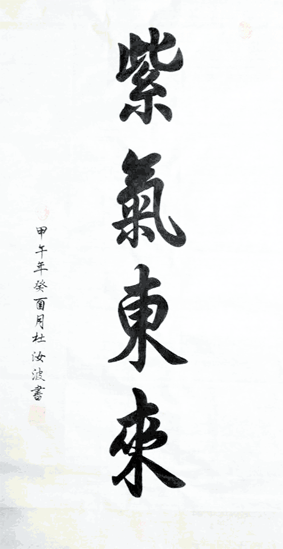 紫氣東來
甲午年癸酉月杜汝波書